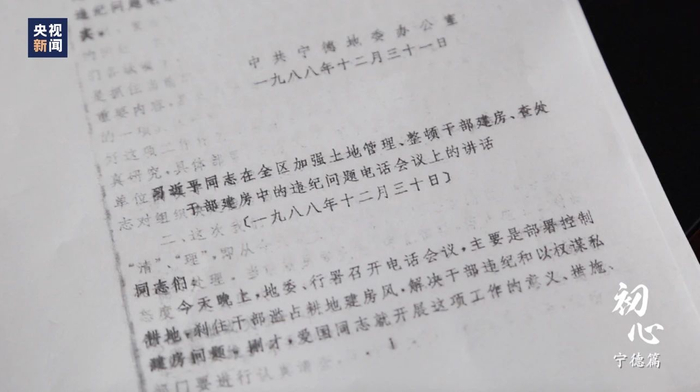 央视
新闻
中共宁德地委办公室
一九八八年十二月三十一日
习近平同志在全区加强土地管理、整顿干部建房、查处
干部建房中的违纪问题电话会议上的讲话
（一九八八年十二月三十日）
同志们：
今天晚上，地委、行署召开电话会议，主要是部署控制
耕地，刹住干部滥占耕地建房风，解决干部违纪和以权谋私
建房问题。刚才，爱国同志就开展这项工作的意义、措施、
初心
宁德篇